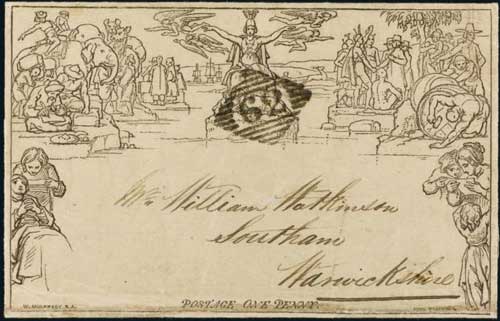 Mr. William Watkinson
Southam
Warwickshire
POSTAGE ONE PENNY.
W. MULREADY. R.A.